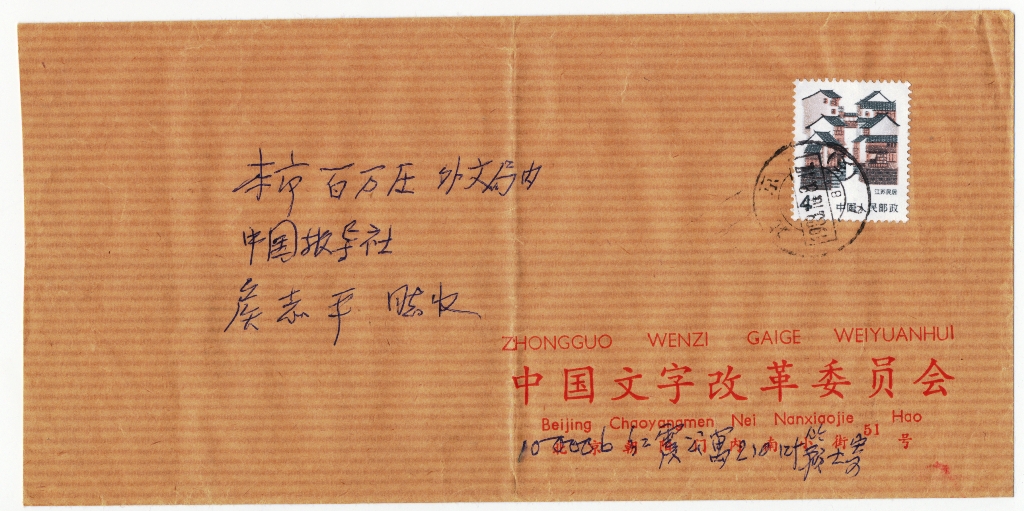 本市 百万庄 外文局内
中国报导社
侯志平 同志收
江苏民居
4
中国人民邮政
ZHONGGUO WENZI GAIGE WEIYUANHUI
中国文字改革委员会
Beijing Chaoyangmen Nei Nanxiaojie 51 Hao
北京朝阳门内南小街 号
霞公寓 叶籁士寄